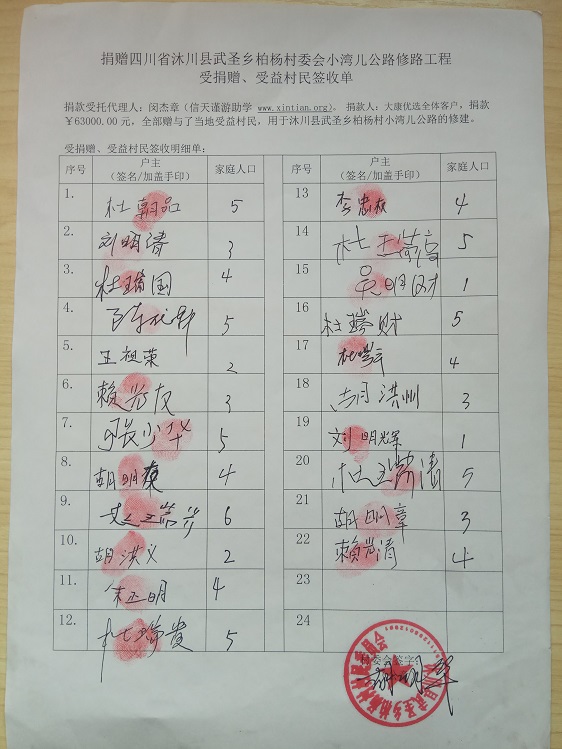 捐赠四川省沐川县武圣乡柏杨村委会小湾儿公路修路工程
受捐赠、受益村民签收单
捐款受托代理人：闵杰章（信天谨游助学 www.xintian.org）。 捐款人：大康优选全体客户，捐款
￥63000.00 元，全部赠与了当地受益村民，用于沐川县武圣乡柏杨村小湾儿公路的修建。
受捐赠、受益村民签收明细单：
序号 户主（签名/加盖手印） 家庭人口
1. 杜朝品 5
2. 刘明清 3
3. 杜瑞国 4
4. 5
5. 王祖荣 2
6. 赖光友 3
7. 张少华 5
8. 胡明康 4
9. 6
10. 胡洪义 2
11. 4
12. 杜瑞贵 5
序号 户主（签名/加盖手印） 家庭人口
13 李忠权 4
14 杜 5
15 吴明财 1
16 杜瑞财 5
17 杜 4
18 胡洪州 3
19 刘明辉 1
20 杜 清 5
21 胡明章 3
22 赖光清 4
23
24
村委会签字：
胡明华
沐川县武圣乡柏杨村村民委员会